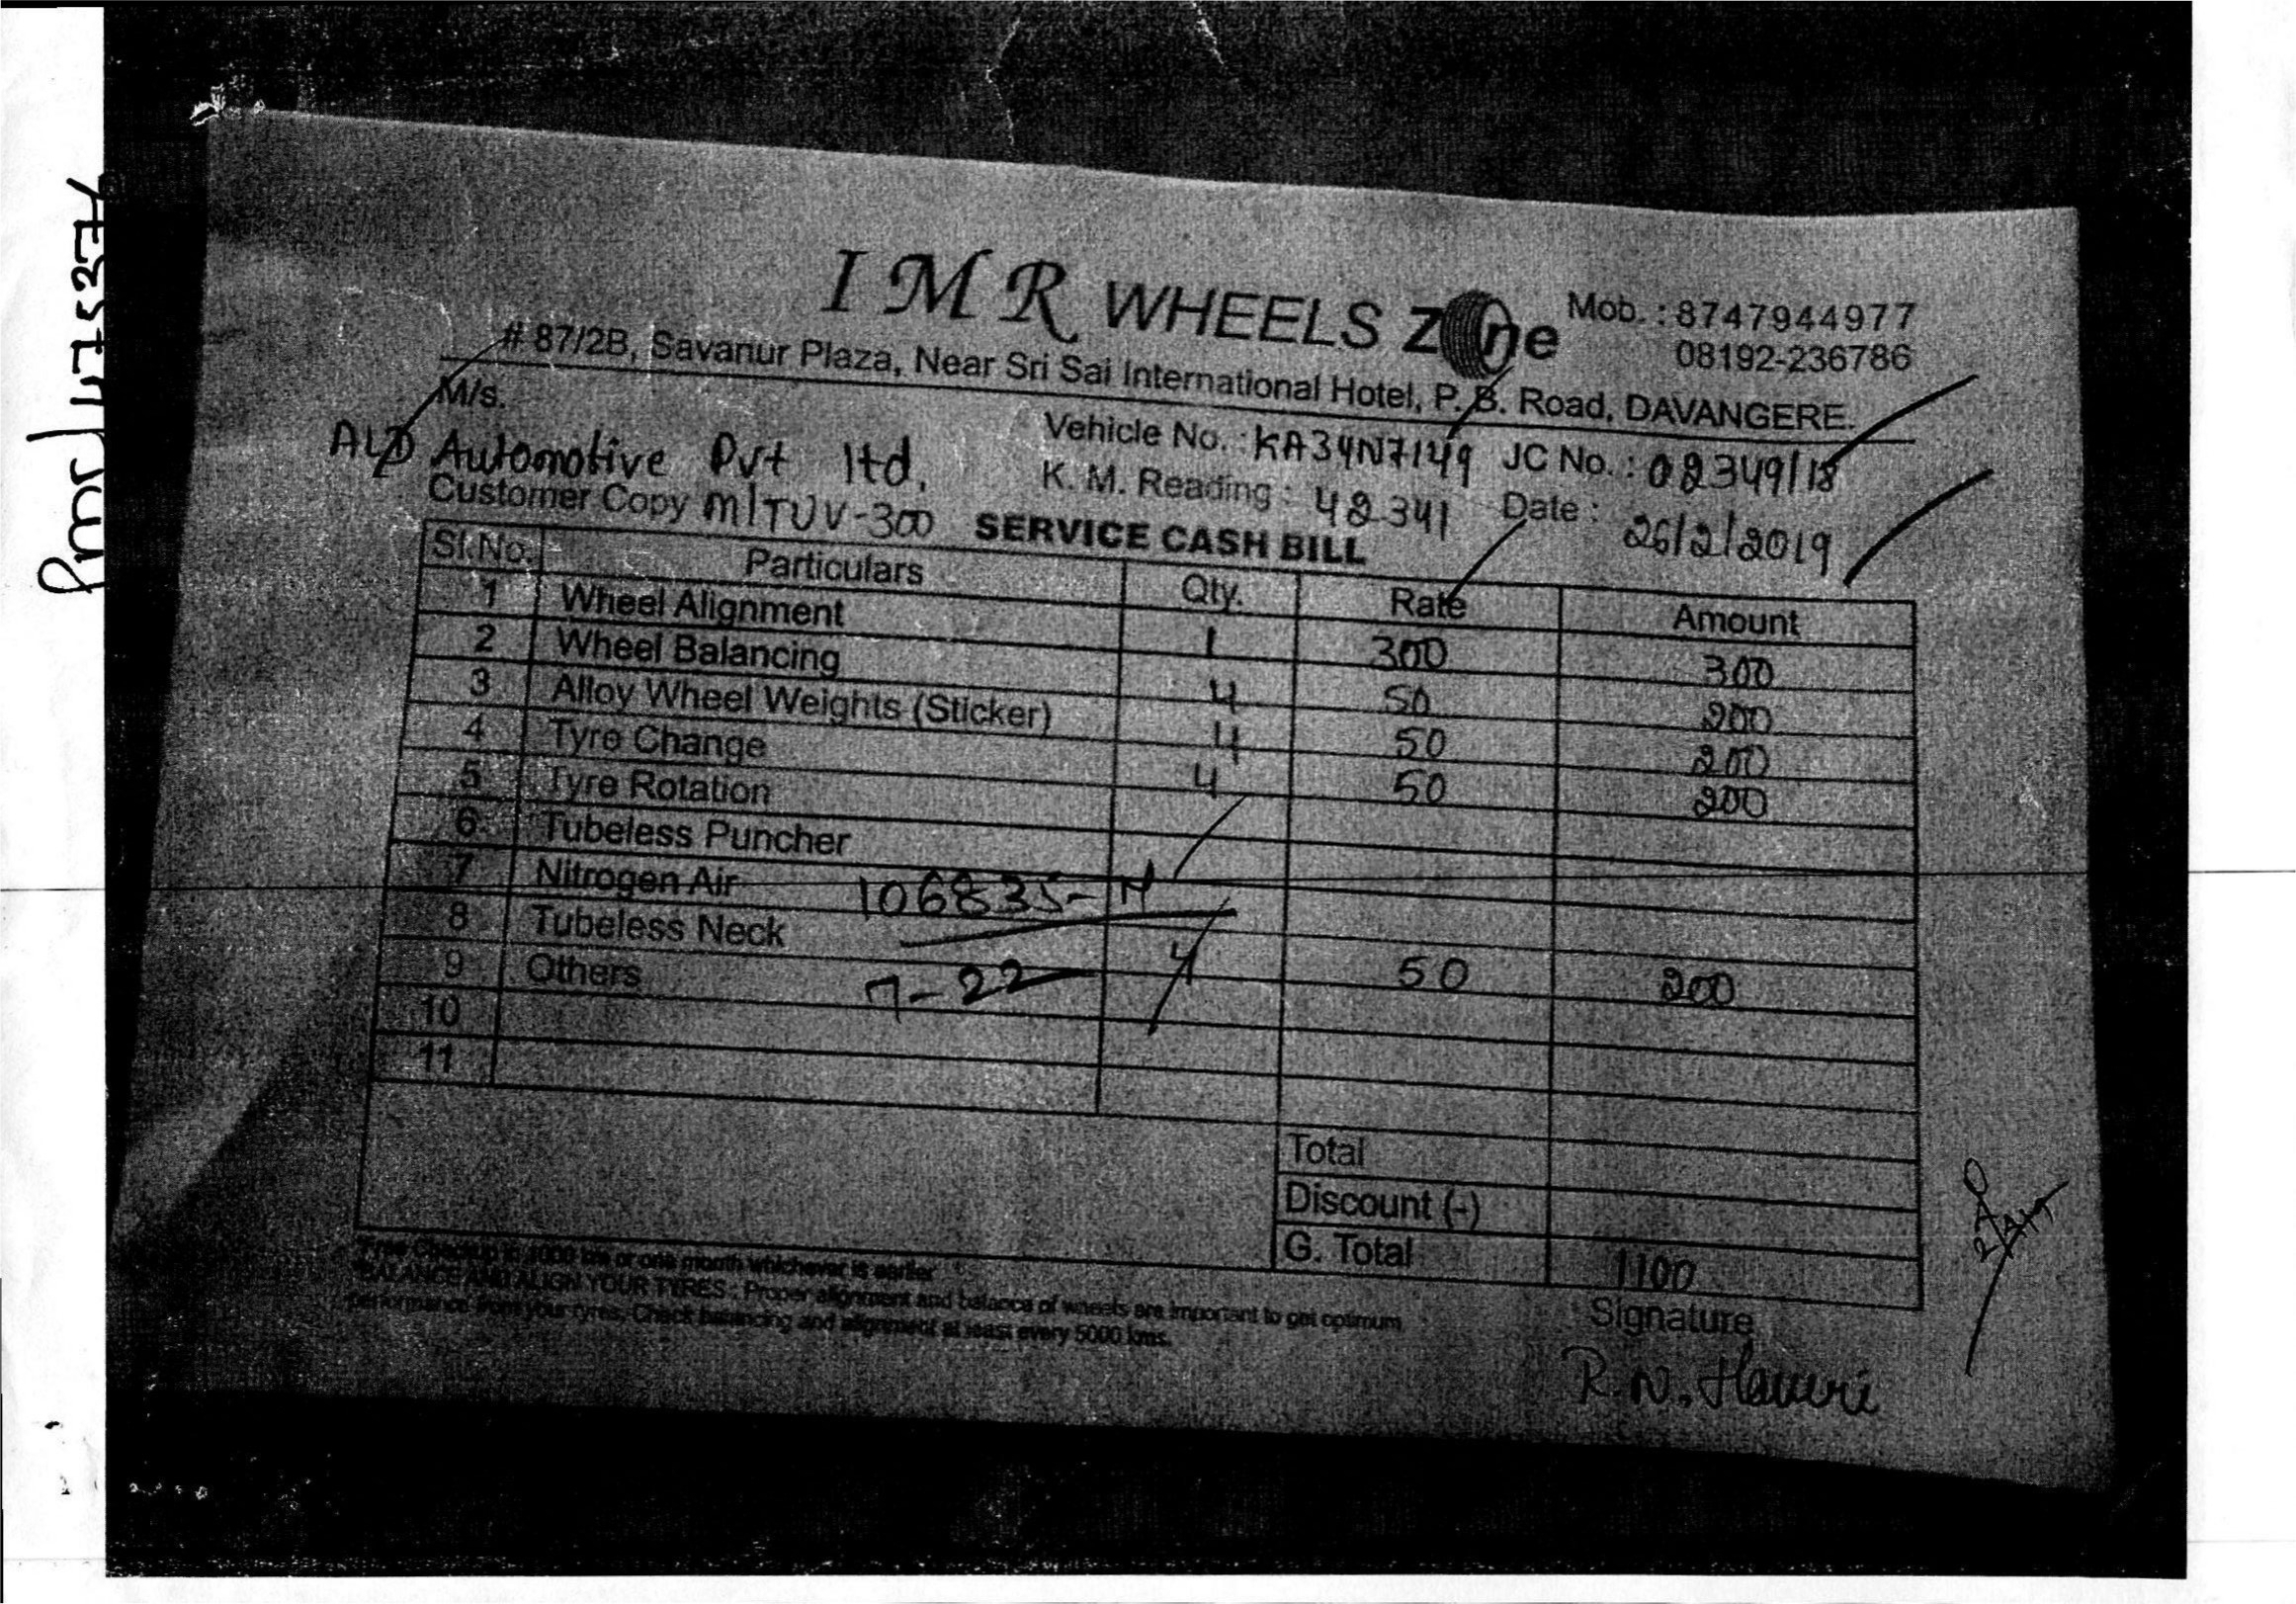 I M R WHEELS Zone
Mob. : 8747944977
08192-236786
# 87/2B, Savanur Plaza, Near Sri Sai International Hotel, P. B. Road, DAVANGERE.
M/s.
ALD Automotive Pvt ltd.
Vehicle No. : KA34N7149 JC No. : 02349/18
Customer Copy M/TUV-300
K. M. Reading : 42341 Date : 26/2/2019
SERVICE CASH BILL
Sl.No. Particulars Qty. Rate Amount
1 Wheel Alignment 1 300 300
2 Wheel Balancing 4 50 200
3 Alloy Wheel Weights (Sticker) 4 50 200
4 Tyre Change 4 50 200
5 Tyre Rotation
6 Tubeless Puncher
7 Nitrogen Air 106835-N
8 Tubeless Neck 4 50 200
9 Others 7-22
10
11
Total
Discount (-)
G. Total 1100
Free Checkup in 1000 km or one month whichever is earlier
BALANCE AND ALIGN YOUR TYRES : Proper alignment and balance of wheels are important to get optimum
performance from your tyres. Check balancing and alignment at least every 5000 kms.
Signature
R.N. Haveri